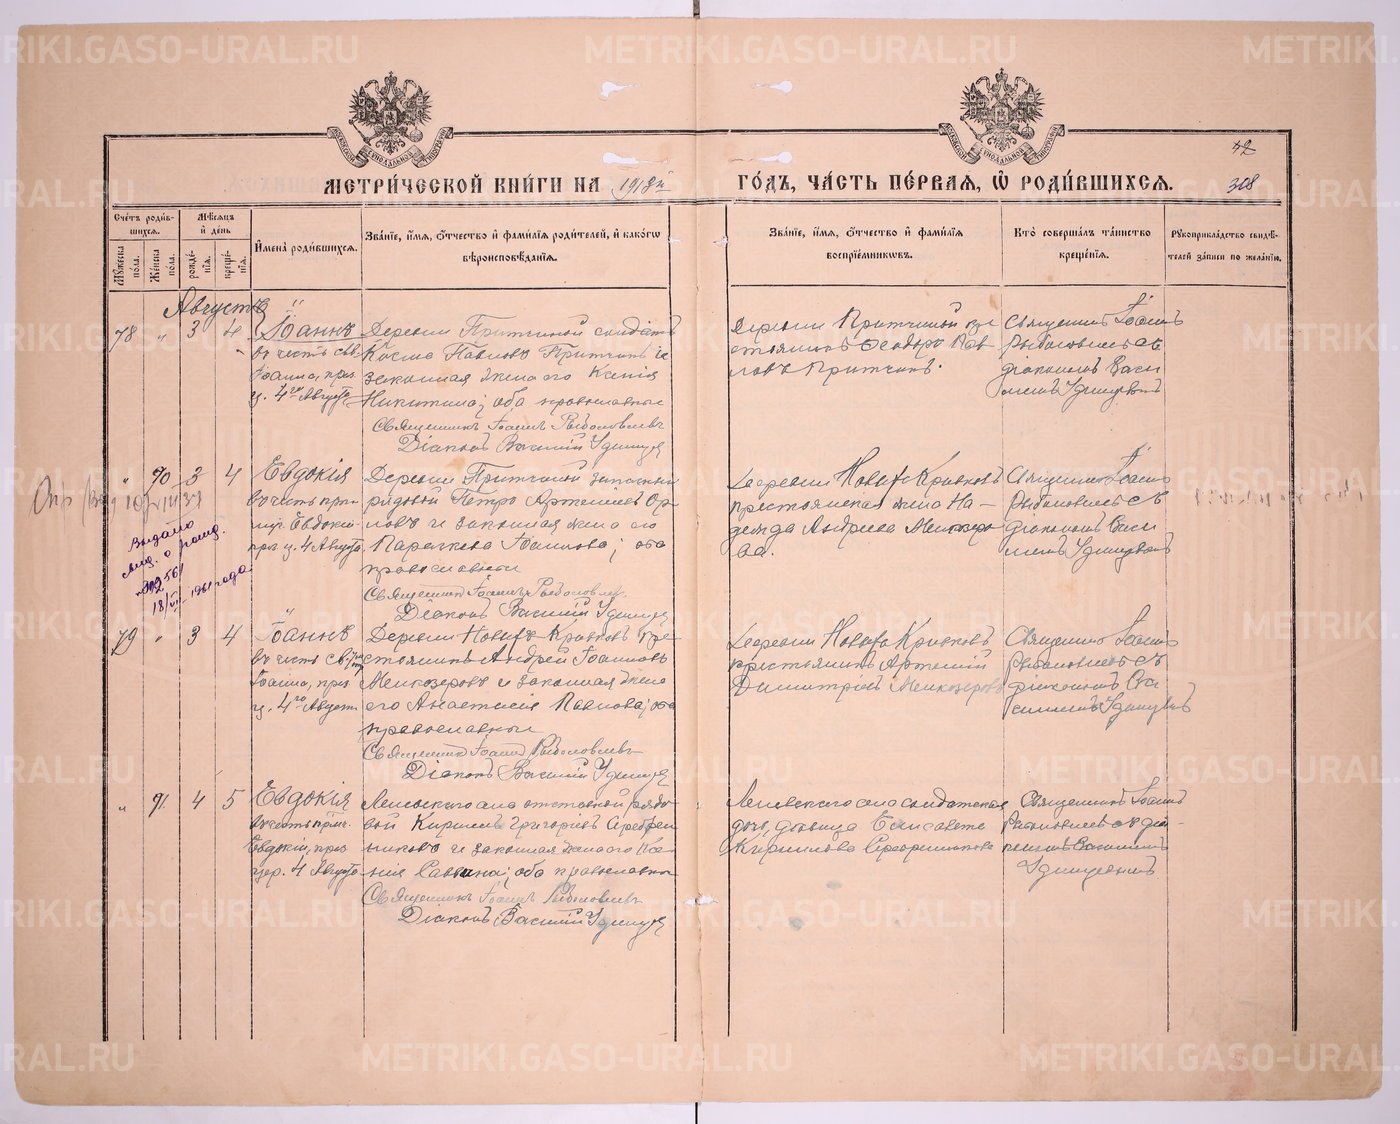 МЕТРИ́ЧЕСКОЙ КНИ́ГИ НА 1918й ГО́ДЪ, ЧА́СТЬ ПЕ́РВАЯ, Ѽ РОДИ́ВШИХСЯ.
42
308
Сче́тъ роди́в-
шихся.
Му́жеска по́ла.
Же́нска по́ла.
Мѣ́сяцъ
и҆ де́нь
рожде́-
нїя.
креще́-
нїя.
И҆мена̀ роди́вшихся.
Зва́нїе, и҆́мя, ѻ҆́тчество и҆ фами́лїя роди́телей, и҆ како́гѡ
вѣроисповѣ́данїя.
Зва́нїе, и҆́мя, ѻ҆́тчество и҆ фами́лїя
воспрїе́мникѡвъ.
Кто̀ соверша́лъ та́инство
креще́нїя.
Рꙋкоприкла́дство свидѣ́-
телей за́писи по жела́нїю.
Августъ
78 " 3 4
Іоаннъ
въ честь свв.
Іоанна, праз.
ц. 4го Августа
Деревни Притчиной солдатъ
Косма Павловъ Притчинъ и
законная жена его Ксенія
Никитина; оба православные
Священникъ Іоаннъ Рыболовлевъ
Діаконъ Василій Удинцев
Деревни Притчиной кре-
стьянинъ Ѳеодоръ Пав-
ловъ Притчинъ.
Священникъ Іоаннъ
Рыболовлевъ съ
діакономъ Васи-
ліемъ Удинцевымъ
" 70 3 4
Евдокія
въ честь пре-
муч. Евдокіи
пра. ц. 4 Августа
Деревни Притчиной запасный
рядовой Петръ Артемьевъ Ор-
ловъ и законная жена его
Параскева Іоаннова; оба
православные
Священникъ Іоаннъ Рыболовлев
Діаконъ Василій Удинцев
Деревни Новыхъ Кривковъ
крестьянская жена На-
дежда Андреева Мелкозеро-
ва.
Священникъ Іоаннъ
Рыболовлевъ съ
діакономъ Васи-
ліемъ Удинцевымъ
Выдано
о рожд.
18/VII-1961 года
79 " 3 4
Іоаннъ
въ честь св.
Іоанна, праз.
ц. 4го Август.
Деревни Новыхъ Кривковъ кре-
стьянинъ Андрей Іоанновъ
Мелкозеровъ и законная жена
его Анастасія Павлова; оба
православные
Священникъ Іоаннъ Рыболовлевъ
Діаконъ Василій Удинцев
Деревни Новыхъ Кривковъ
крестьянинъ Артемій
Димитріевъ Мелкозеровъ
Священникъ Іоаннъ
Рыболовлевъ съ
діакономъ Ва-
силіемъ Удинцевымъ
" 71 4 5
Евдокія
въ честь прмч.
Евдокіи, праз.
цер. 4 Августа
села отставной рядо-
вой Кириллъ Григорьевъ Серебрен-
никовъ и законная жена его
Саввина; оба православные
Священникъ Іоаннъ Рыболовлевъ
Діаконъ Василій Удинцев
села солдатская
дочь, девица Елисавета
Кириллова Серебренникова
Священникъ Іоаннъ
Рыболовлевъ съ діа-
кономъ Василіемъ
Удинцевымъ
METRIKI.GASO-URAL.RU